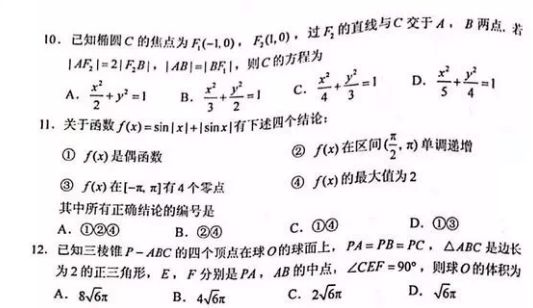 10. 已知椭圆 C 的焦点为 F₁(-1,0)，F₂(1,0)，过 F₂ 的直线与 C 交于 A，B 两点. 若
|AF₂|=2|F₂B|，|AB|=|BF₁|，则 C 的方程为
A. x²/2+y²=1 B. x²/3+y²/2=1 C. x²/4+y²/3=1 D. x²/5+y²/4=1
11. 关于函数 f(x)=sin|x|+|sin x| 有下述四个结论：
① f(x) 是偶函数 ② f(x) 在区间 (π/2, π) 单调递增
③ f(x) 在 [-π, π] 有 4 个零点 ④ f(x) 的最大值为 2
其中所有正确结论的编号是
A. ①②④ B. ②④ C. ①④ D. ①③
12. 已知三棱锥 P-ABC 的四个顶点在球 O 的球面上，PA=PB=PC，△ABC 是边长
为 2 的正三角形，E，F 分别是 PA，AB 的中点，∠CEF=90°，则球 O 的体积为
A. 8√6π B. 4√6π C. 2√6π D. √6π